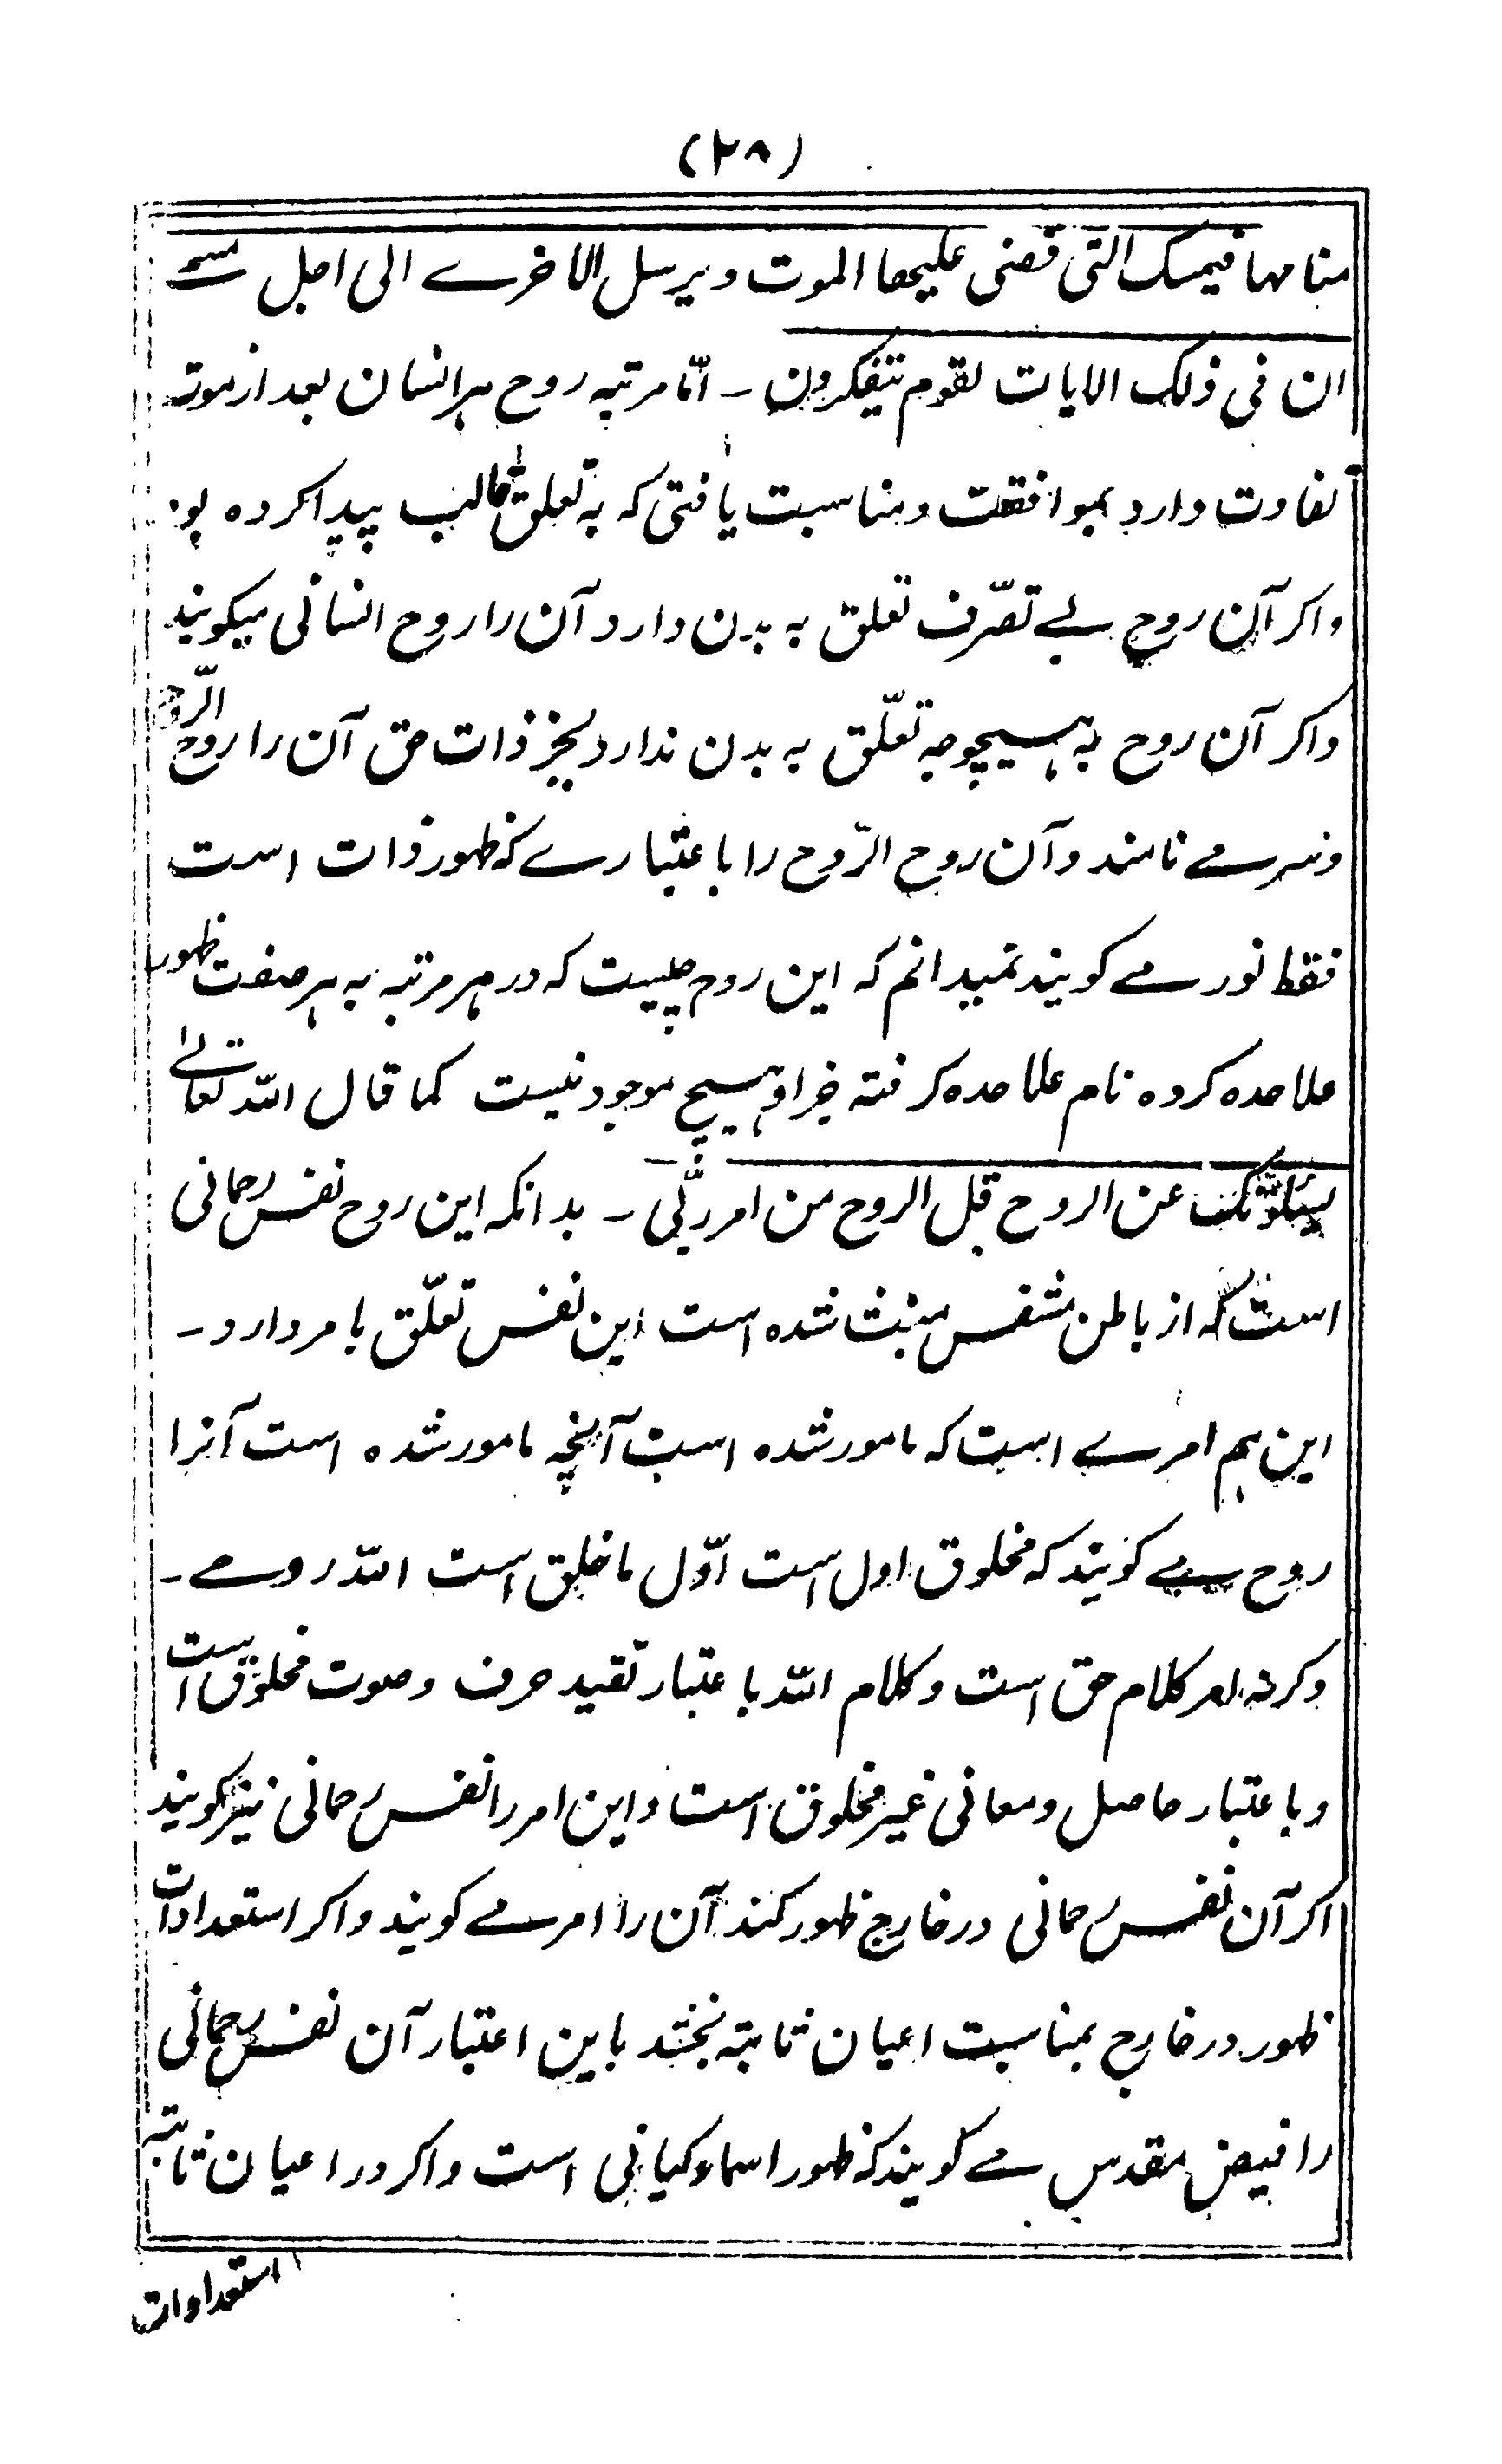 (۲۸)
منامها فیمسک التی قضی علیها الموت ویرسل الاخرے الی اجل مسمے
ان فی ذلک الایات لقوم تیفکرون ۔ امّا مرتبه روح هر انسان بعد از موت
تفاوت دارد بموافقت ومناسبت یافتی که به تعلق قالب پیدا کرده بود
واکر آن روح بے تصرّف تعلق به بدن دارد آن را روح انسانی میکویند
واکر آن روح به هیچوجه تعلّق به بدن ندارد بجز ذات حق آن را روح الرّوح
وسرمے نامند وآن روح الرّوح را باعتبارے که ظهور ذات است
فقط نور مے کویند نمیدانم که این روح چیست که در هر مرتبه به هر صفت ظهور
علاحده کرده نام علاحده کرفته جز او هیچ موجود نیست کما قال الله تعالے
یسئلونک عن الروح قل الروح من امر ربّی ۔ بدانکه این روح نفس رحمانی
است که از باطن متنفس منبث شده است این نفس تعلّق بامر دارد ۔
این هم امرے است که مامور شده است آنچه مامور شده است آنرا
روح مے کویند که مخلوق اول است اوّل ما خلق است الله روحے ۔
وکرنه امر کلام حق است وکلام الله باعتبار تقید حرف وصوت مخلوق است
وباعتبار حاصل ومعانی غیر مخلوق است واین امر را نفس رحمانی نیز کویند
اکر آن نفس رحمانی در خارج ظهور کند آن را امر مے کویند واکر استعدادات
ظهور در خارج بمناسبت اعیان ثابته بخشد باین اعتبار آن نفس رحمانی
را فیض مقدس مے کویند که ظهور اسماء کیانی است واکر در اعیان ثابته
استعدادات